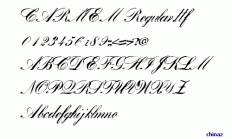 CARMEM Regular.ttf
0123456789
ABCDEFGHIJKLM
NOPQRSTUVWXYZ
Abcdefghijklmno
chinaz